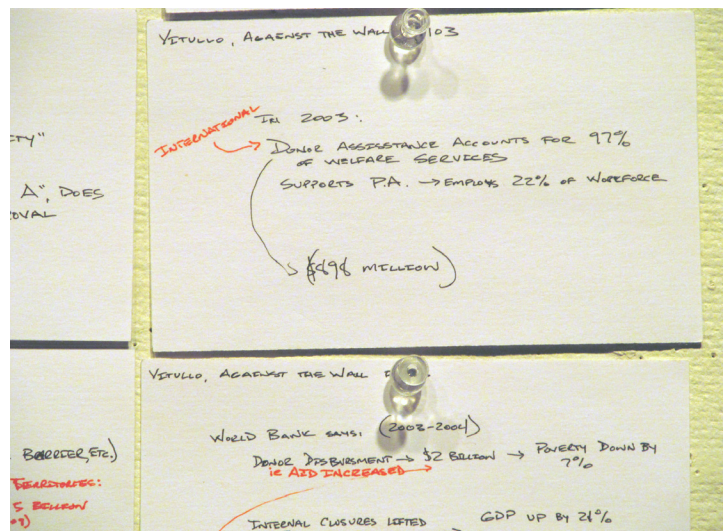 VITULLO, AGAINST THE WALL 103
IN 2003:
INTERNATIONAL
DONOR ASSISSTANCE ACCOUNTS FOR 97%
OF WELFARE SERVICES
SUPPORTS P.A. → EMPLOYS 22% OF WORKFORCE
($898 MILLION)
TY"
A", DOES
OVAL
VITULLO, AGAINST THE WALL
WORLD BANK SAYS: (2003-2004)
DONOR DISBURSMENT → $2 BILLION → POVERTY DOWN BY
7%
ie AID INCREASED
INTERNAL CLOSURES LIFTED
GDP UP BY 21%
BARRIER, ETC.)
TERRITORIES:
5 BILLION